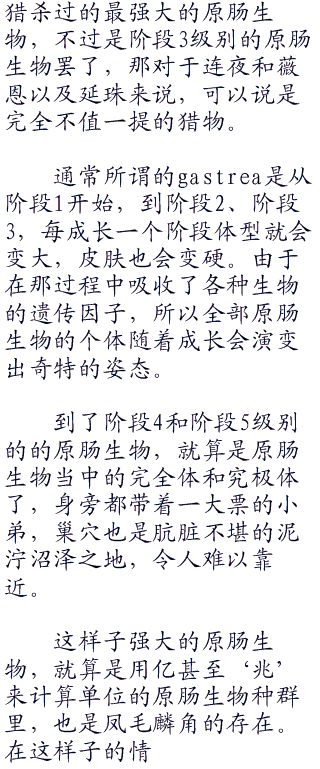 猎杀过的最强大的原肠生
物，不过是阶段3级别的原肠
生物罢了，那对于连夜和薇
恩以及延珠来说，可以说是
完全不值一提的猎物。
通常所谓的gastrea是从
阶段1开始，到阶段2、阶段
3，每成长一个阶段体型就会
变大，皮肤也会变硬。由于
在那过程中吸收了各种生物
的遗传因子，所以全部原肠
生物的个体随着成长会演变
出奇特的姿态。
到了阶段4和阶段5级别
的的原肠生物，就算是原肠
生物当中的完全体和究极体
了，身旁都带着一大票的小
弟，巢穴也是肮脏不堪的泥
泞沼泽之地，令人难以靠
近。
这样子强大的原肠生
物，就算是用亿甚至‘兆’
来计算单位的原肠生物种群
里，也是凤毛麟角的存在。
在这样子的情